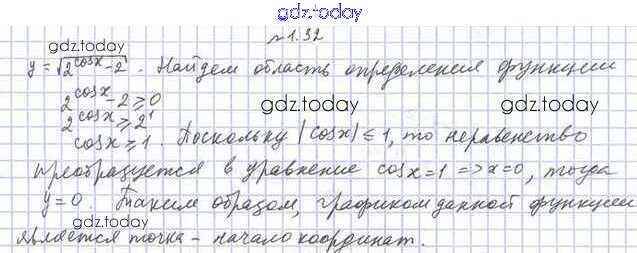 gdz.today
№1.32
gdz.today
y = √(2^cosx - 2) . Найдем область определения функции
2^cosx - 2 ≥ 0
gdz.today
gdz.today
2^cosx ≥ 2^1
cosx ≥ 1 . Поскольку |cosx| ≤ 1, то неравенство
преобразуется в уравнение cosx = 1 => x = 0, тогда
y = 0 . Таким образом, графиком данной функции
gdz.today
является точка - начало координат.